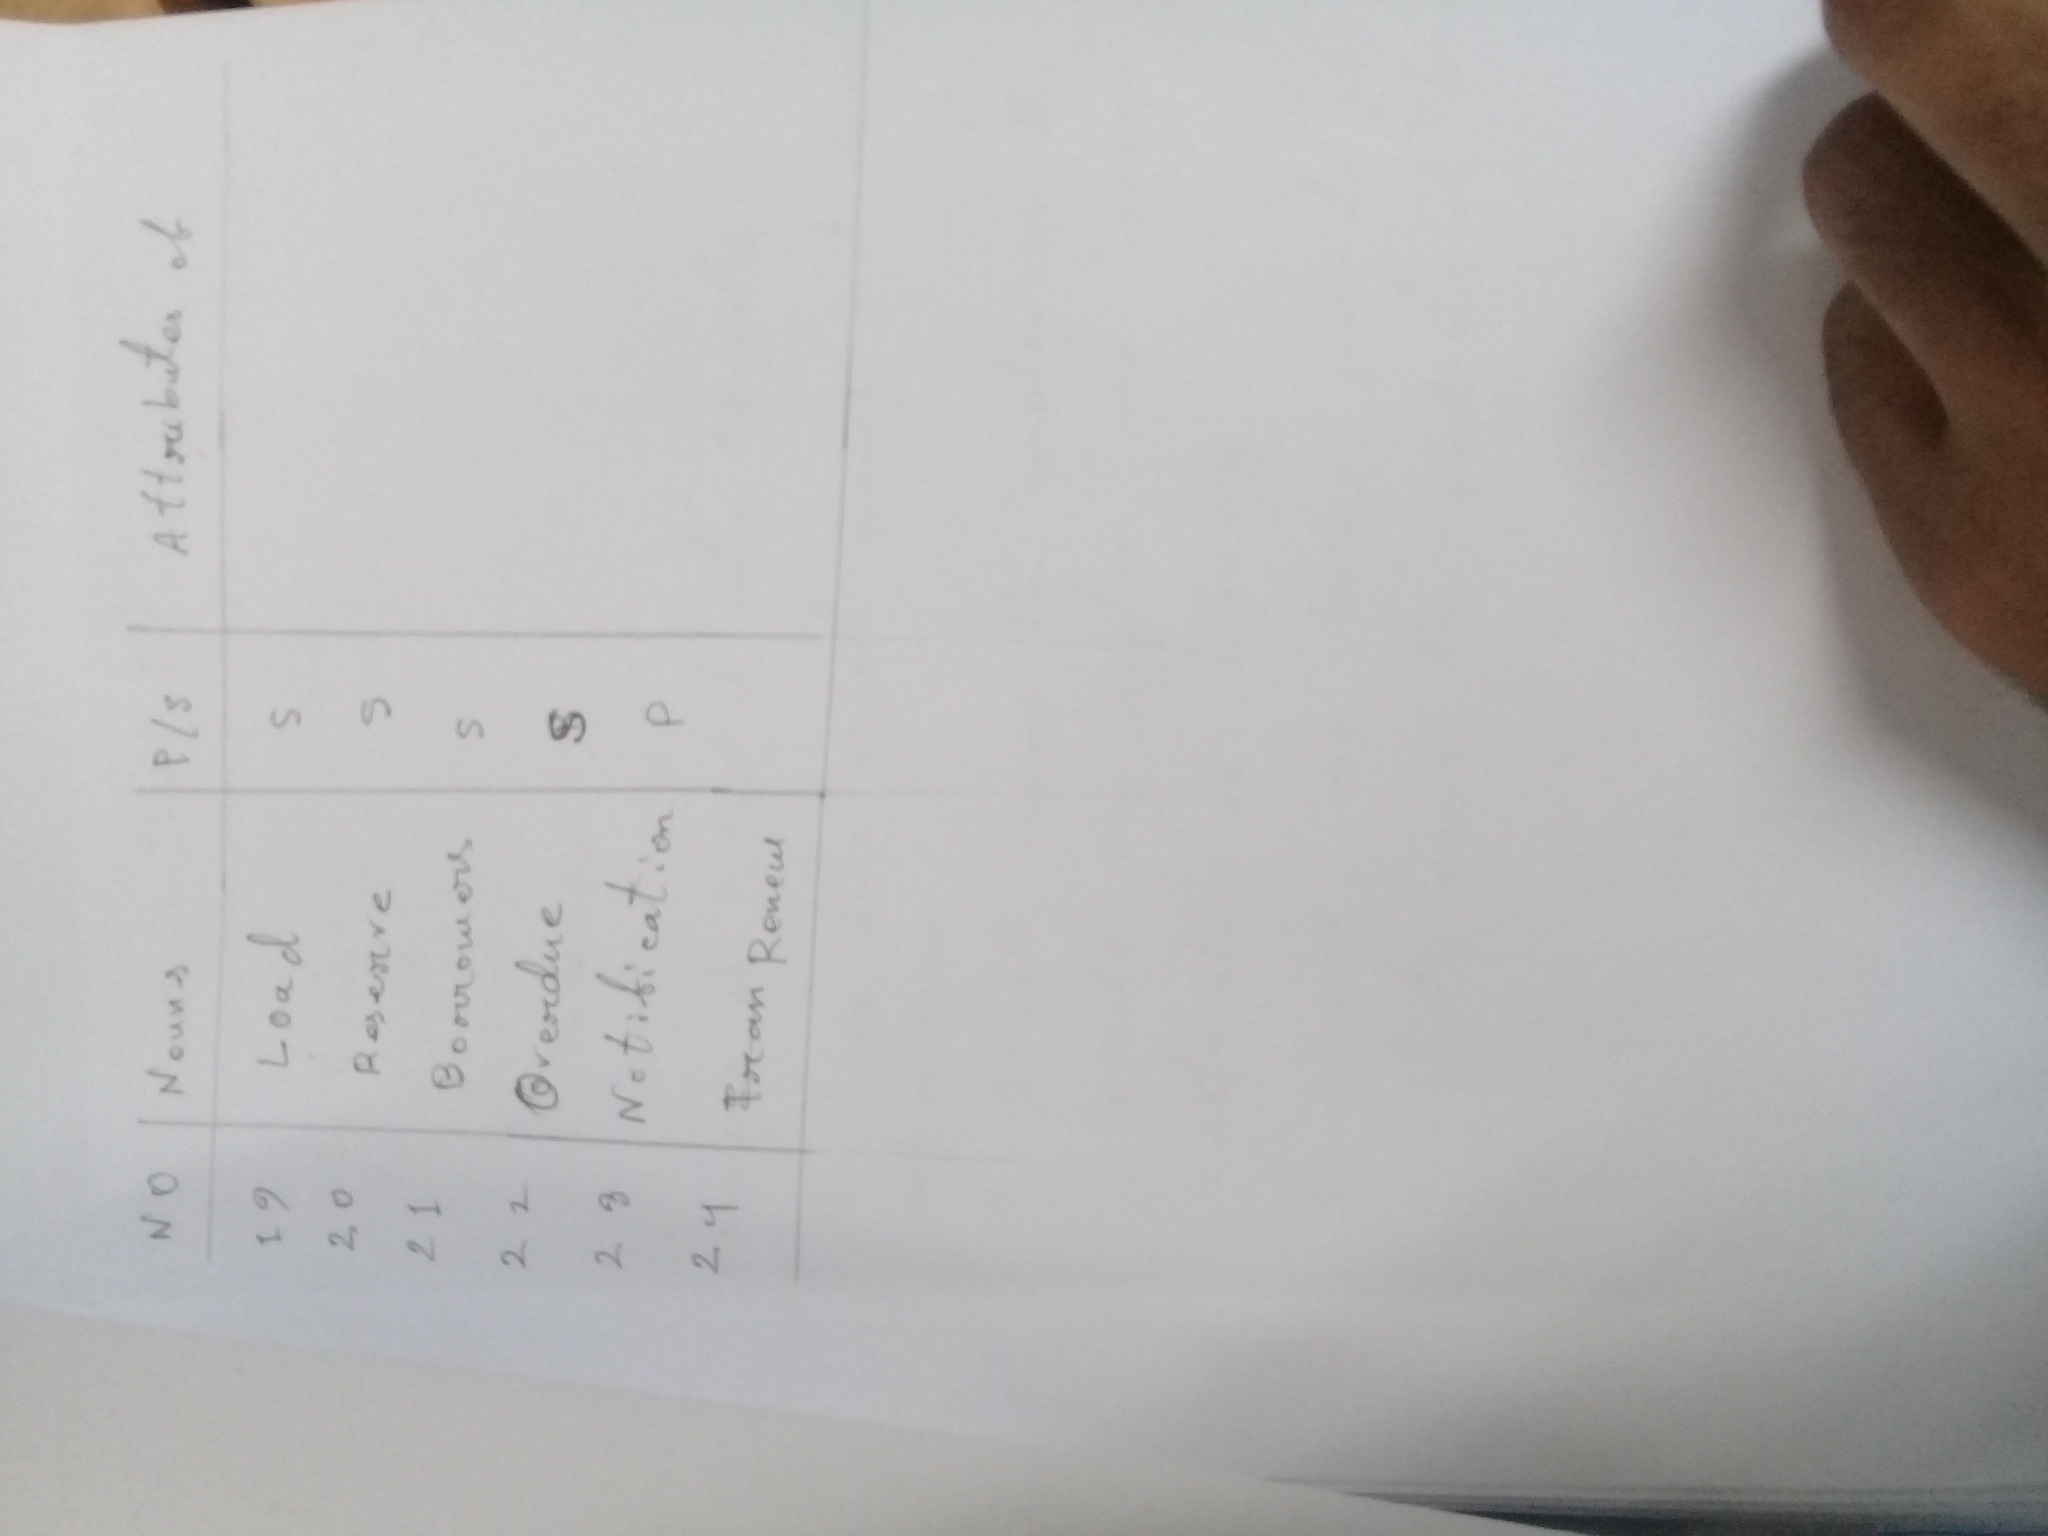 NO Nouns P/S Attributes of
19 Load S
20 Reserve S
21 Borrowers S
22 Overdue S
23 Notification P
24 Renew